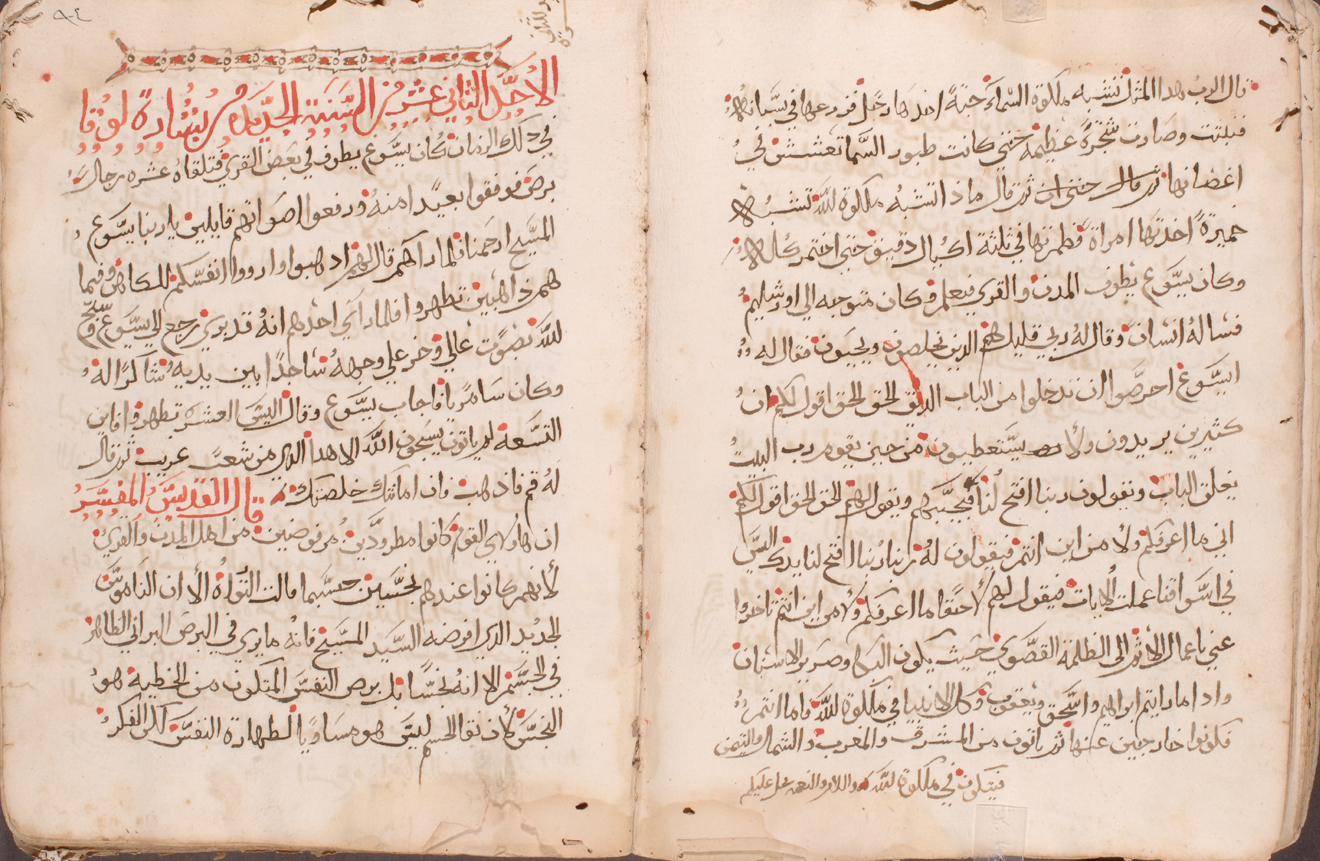 قال الرب هدا المثل تشبه ملكوة السماء حبة اخدها رجل فزرعها في بستانه
فنبتت وصارت شجرة عظيمة حتى كانت طيور السما تعشش في
اغصانها ثم قال ماد اتشبه ملكوة الله تشبه
خميرة اخدتها امراة فطمرتها في ثلثة اكيال دقيق حتى اختمر كله
وكان يسوع يطوف المدن والقري فيعلم وكان متوجه الى اورشليم
فساله انسان وقال له ربي قليل هم الدين يخلصون ويحيون فقال له
ايسوع احرصوا ان تدخلوا من الباب الديق الحق الحق اقول لكم ان
كتيرين يريدون ولا يستعطيون من حين يقوم رب البيت
يغلق الباب ويقولون ربنا افتح لنا فيجيبهم ويقول لهم الحق الحق اقول لكم
اني ما اعرفكم ولا من اين انتم فيقولون له ربنا ربنا افتح لنا يدك
في اسواقنا عملت الايات فيقول لهم لا حقا ما اعرفكم ولا من اين انتم تاخروا
عني يا عمال الاثم الى الظلمة القصوى حيث يكون البكا وصرير الاسنان
واد اما رايتم ابراهيم واسحق ويعقوب وكل الانبيا في ملكوة الله واما انتم
فكونوا خارجين عنها ثم ياتون من المشرق والمغرب والشمال واليمن
فيتكون في ملكوة الله
الاحد الثاني عشر من السنة الجديدة من بشارة لوقا
في دلك الزمان كان يسوع يطوف في بعض القري فتلقاه عشره رجال
برص فوقفوا بعيدا منه ورفعوا اصواتهم قايلين يا ربنا يسوع
المسيح ارحمنا فلما راهم قال لهم ادهبوا واروا انفسكم للكاهن وفيما
هم داهبين تطهروا فلما راي احدهم انه قد بري رجع الى يسوع يسبح
لله بصوت عالي وخر على وجهه ساجدا بين يديه شاكرا له
وكان سامريا فاجاب يسوع وقال اليس العشرة تطهروا فاين
التسعه لم ياتون يسبحون الله الا هدا الدي من شعب غريب ثم قال
له قم فادهب فان امانتك خلصتك قال القديس المفسر
ان هاولاي القوم كانوا مطرودين مرفوضين من اهل المدن والقري
لانهم كانوا عندهم نجسين حسبما قالت التوراة الا ان الناموس
الجديد الدي افرضه السيد المسيح فانه ما يري في البرص البراني الظاهر
في الجسم الا انه نجسا بل برص النفس المتكون من الخطية هو
النجس لان نقا الجسم ليس هو مساويا لطهارة النفس لكن الفكر